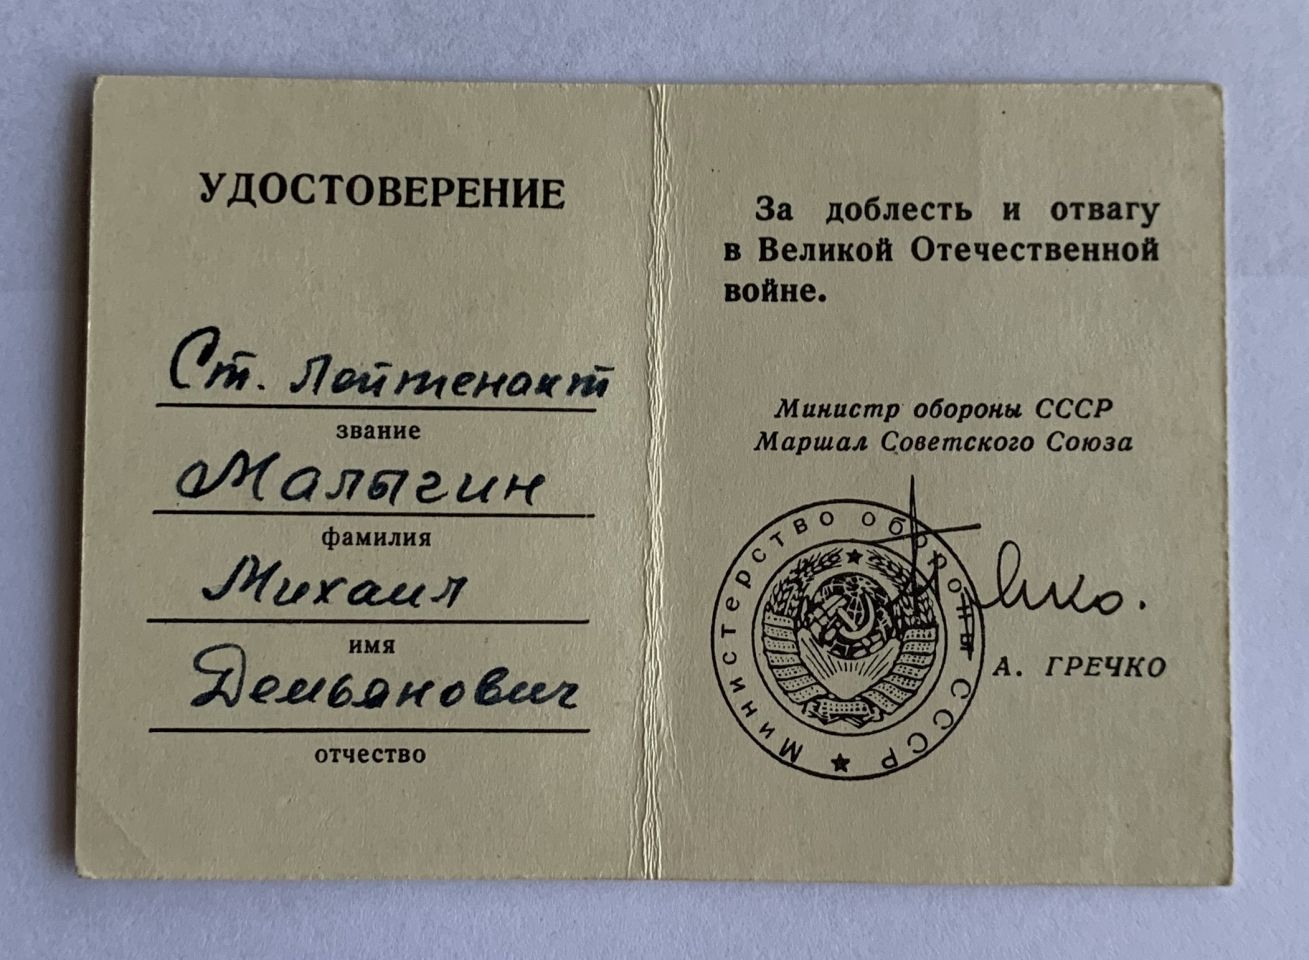 УДОСТОВЕРЕНИЕ
Ст. Лейтенант
звание
Малыгин
фамилия
Михаил
имя
Демьянович
отчество
За доблесть и отвагу
в Великой Отечественной
войне.
Министр обороны СССР
Маршал Советского Союза
Министерство обороны СССР
А. ГРЕЧКО